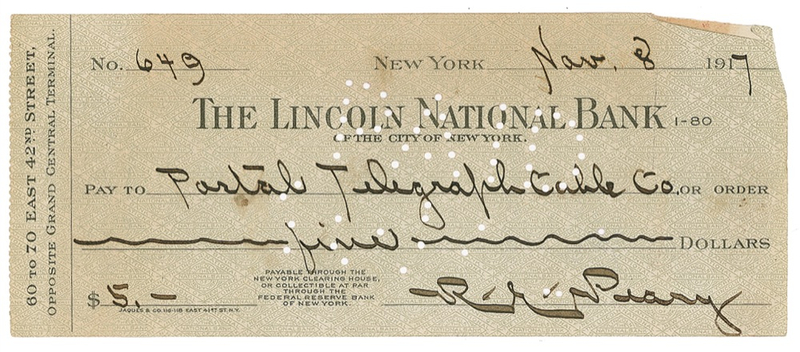 60 TO 70 EAST 42ND STREET,
OPPOSITE GRAND CENTRAL TERMINAL.
No. 649 NEW YORK Nov. 8 1917
THE LINCOLN NATIONAL BANK 1-80
OF THE CITY OF NEW YORK.
PAY TO Postal Telegraph Cable Co. OR ORDER
five DOLLARS
PAYABLE THROUGH THE
NEW YORK CLEARING HOUSE,
OR COLLECTIBLE AT PAR
THROUGH THE
FEDERAL RESERVE BANK
OF NEW YORK.
$5.–
R. E. Peary
JAQUES & CO. 116-118 EAST 41ST ST. N.Y.